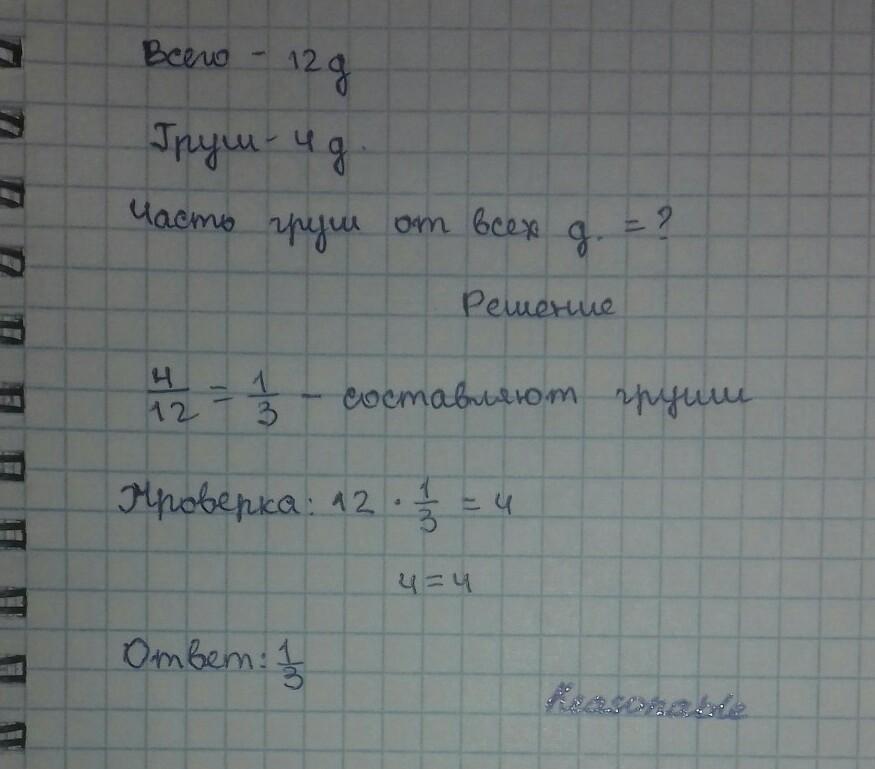 Всего - 12 д
Груш - 4 д.
Часть груш от всех д. = ?
Решение
4/12 = 1/3 - составляют груши
Проверка: 12 · 1/3 = 4
4 = 4
Ответ: 1/3
Reasonable